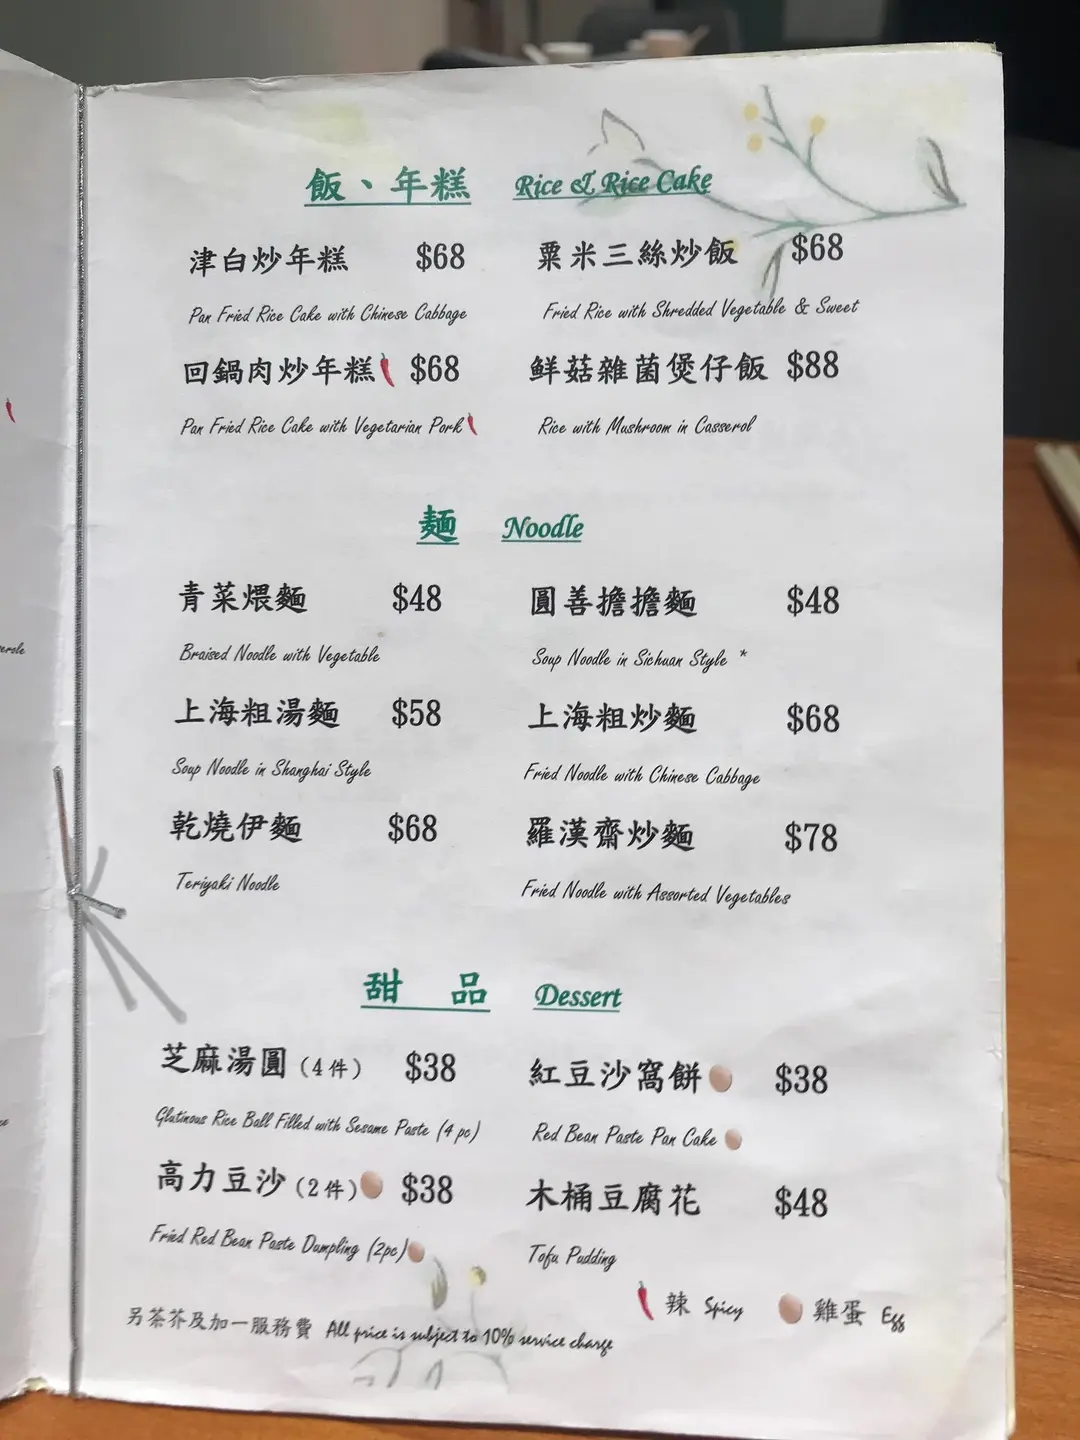 飯、年糕 Rice & Rice Cake
津白炒年糕 $68
Pan Fried Rice Cake with Chinese Cabbage
粟米三絲炒飯 $68
Fried Rice with Shredded Vegetable & Sweet
回鍋肉炒年糕 $68
Pan Fried Rice Cake with Vegetarian Pork
鮮菇雜菌煲仔飯 $88
Rice with Mushroom in Casserol
麵 Noodle
青菜煨麵 $48
Braised Noodle with Vegetable
圓善擔擔麵 $48
Soup Noodle in Sichuan Style *
上海粗湯麵 $58
Soup Noodle in Shanghai Style
上海粗炒麵 $68
Fried Noodle with Chinese Cabbage
乾燒伊麵 $68
Teriyaki Noodle
羅漢齋炒麵 $78
Fried Noodle with Assorted Vegetables
甜 品 Dessert
芝麻湯圓 (4件) $38
Glutinous Rice Ball Filled with Sesame Paste (4 pc)
紅豆沙窩餅 $38
Red Bean Paste Pan Cake
高力豆沙 (2件) $38
Fried Red Bean Paste Dumpling (2pc)
木桶豆腐花 $48
Tofu Pudding
辣 Spicy 雞蛋 Egg
另茶芥及加一服務費 All price is subject to 10% service charge